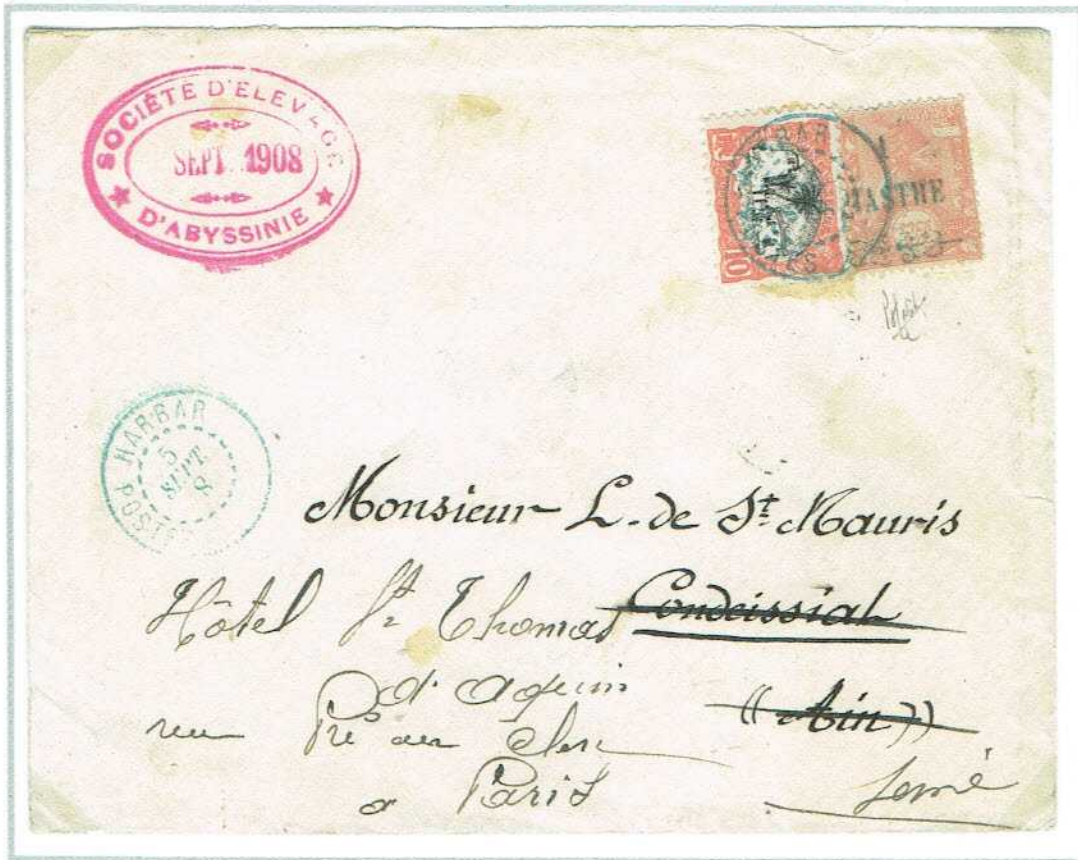 SOCIÉTÉ D'ELEVAGE
SEPT. 1908
D'ABYSSINIE
10
PIASTRE
HARRAR
5
SEPT
8
POSTES
Monsieur L. de St. Mauris
Hôtel St Thomas Condeissiat
d'Aquin ((Ain))
rue Pré au clerc
a Paris